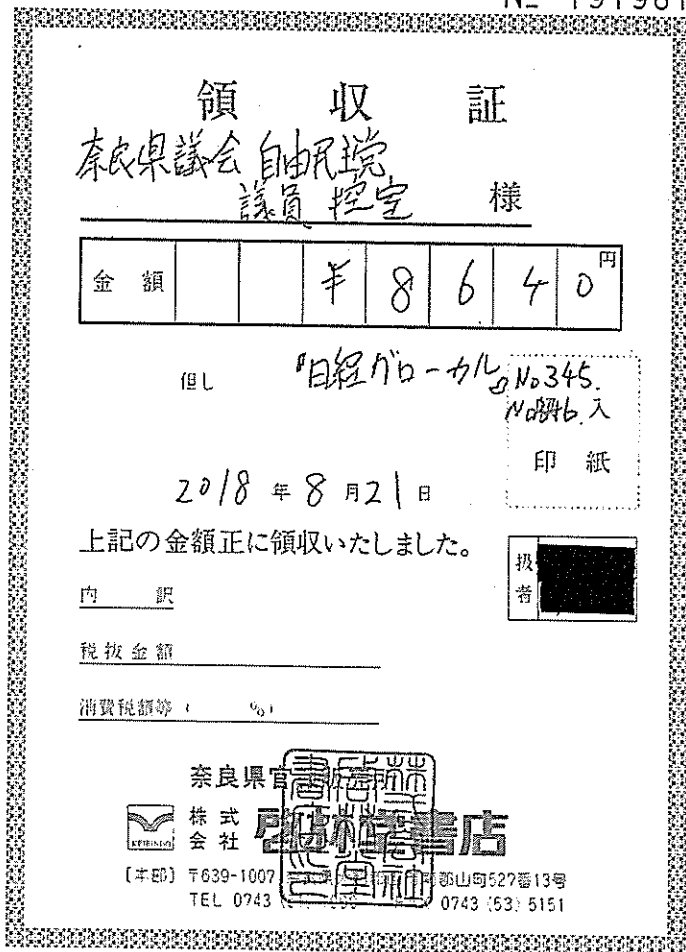 領収証
奈良県議会 自由民主党
議員 控室 様
金額 ¥8640円
但し 『日経グローカル』No345.
入
印紙
2018年8月21日
上記の金額正に領収いたしました。
扱者
内訳
税抜金額
消費税額等( %)
奈良県官
株式会社 啓林堂書店
KEIRINDO
[本部] 〒639-1007 郡山町527番13号
TEL 0743 0743 (53) 5151